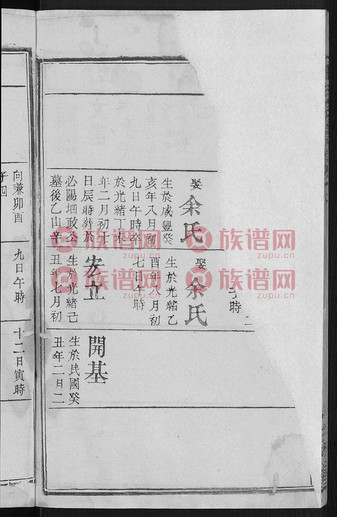 娶余氏
生於咸豐癸
亥年八月初
九日午時
於光緒丁未
年二月初十
日辰時葬於
必陽垇政公
墓後乙山辛
娶余氏
生於光緒乙
酉年八月初
七日午時
宏立
生於光緒己
丑年七月初
開基
生於民國癸
丑年二月二
時
向兼卯酉
九日午時
十二日寅時
族谱网
www.zupu.cn